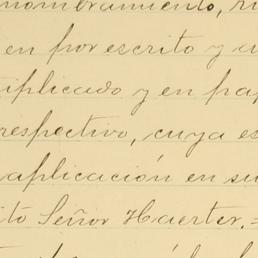 nombramiento,
en por escrito y
tiplicado y en pa
respectivo, cuya es
aplicación en su
ito Señor Haerter.=